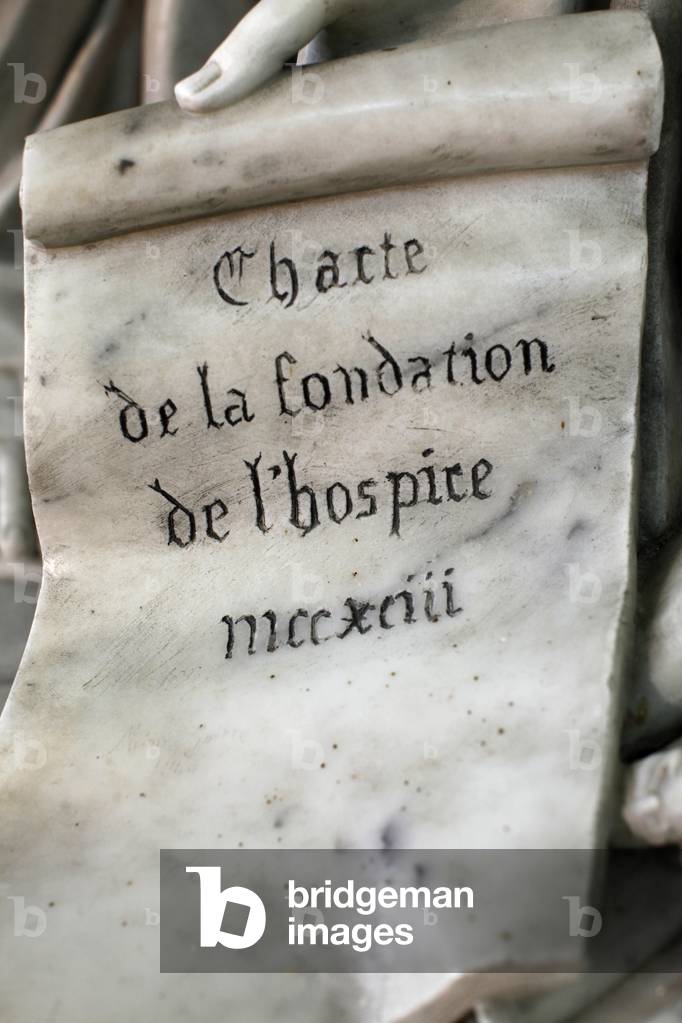 Charte
de la fondation
de l'hospice
mccxciii
b bridgeman
images